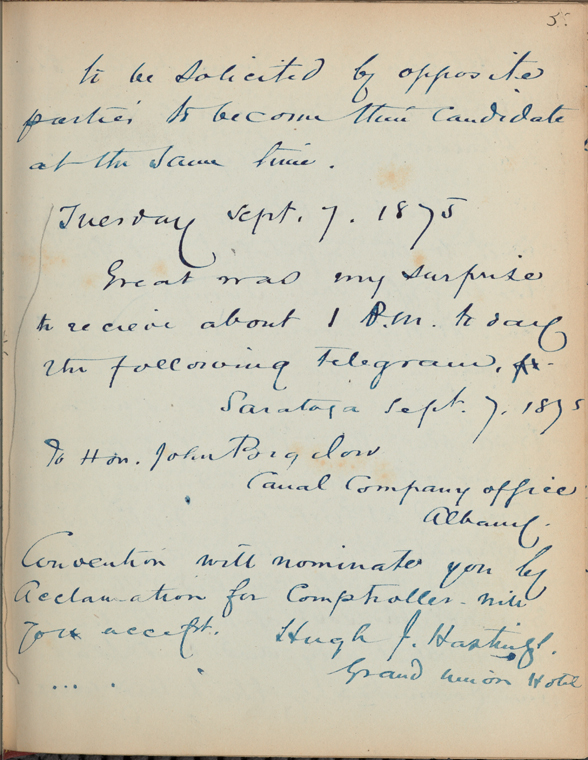 5.
to be solicited by opposite
parties to become their candidate
at the same time.
Tuesday Sept. 7. 1875
Great was my surprise
to recieve about 1 P.M. to day
the following telegram.
Saratoga Sept. 7. 1875
To Hon. John Bigelow
Canal Company office
Albany.
Convention will nominate you by
Acclamation for Comptroller. Will
you accept. Hugh J. Hastings.
Grand Union Hotel